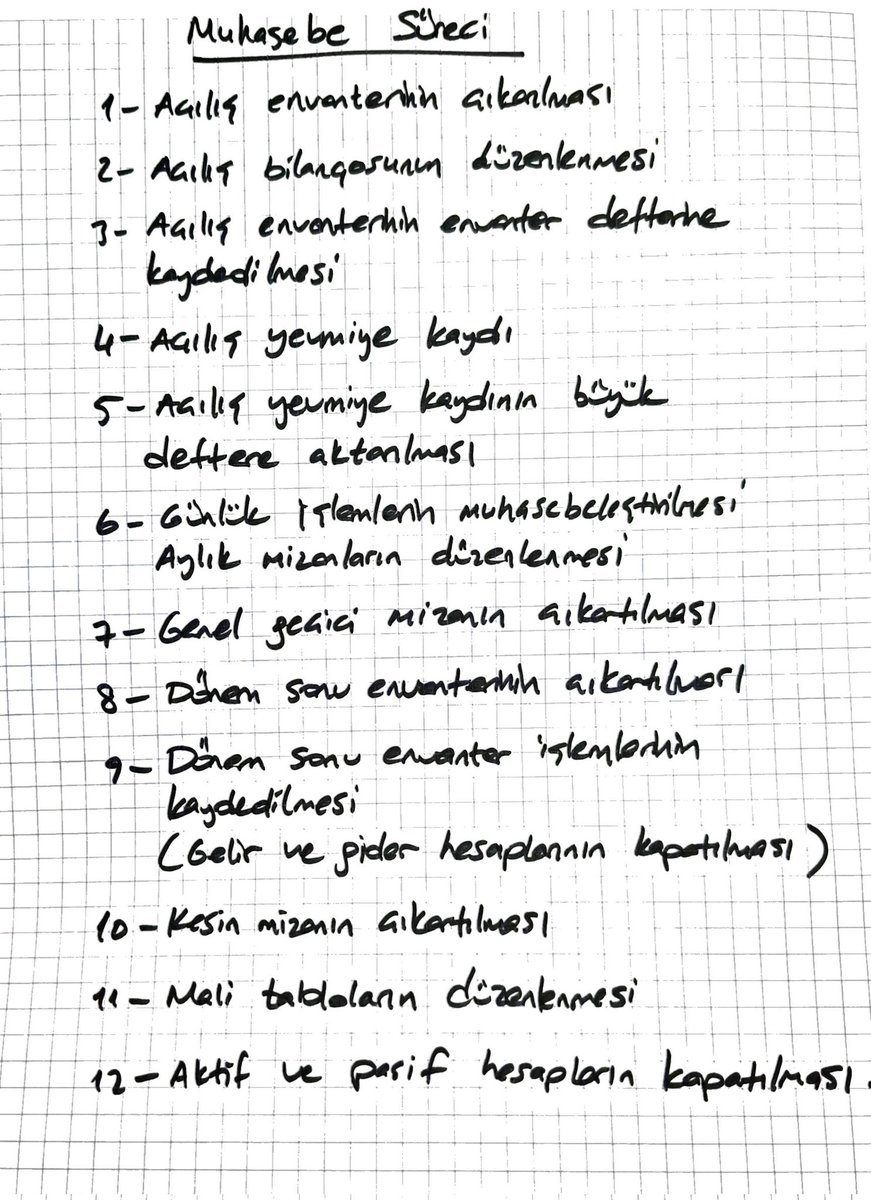 Muhasebe Süreci
1- Açılış envanterinin çıkarılması
2- Açılış bilançosunun düzenlenmesi
3- Açılış envanterinin envanter defterine
kaydedilmesi
4- Açılış yevmiye kaydı
5- Açılış yevmiye kaydının büyük
deftere aktarılması
6- Günlük işlemlerin muhasebeleştirilmesi
Aylık mizanların düzenlenmesi
7- Genel geçici mizanın çıkartılması
8- Dönem sonu envanterinin çıkartılması
9- Dönem sonu envanter işlemlerinin
kaydedilmesi
(Gelir ve gider hesaplarının kapatılması)
10- Kesin mizanın çıkartılması
11- Mali tabloların düzenlenmesi
12- Aktif ve pasif hesapların kapatılması.